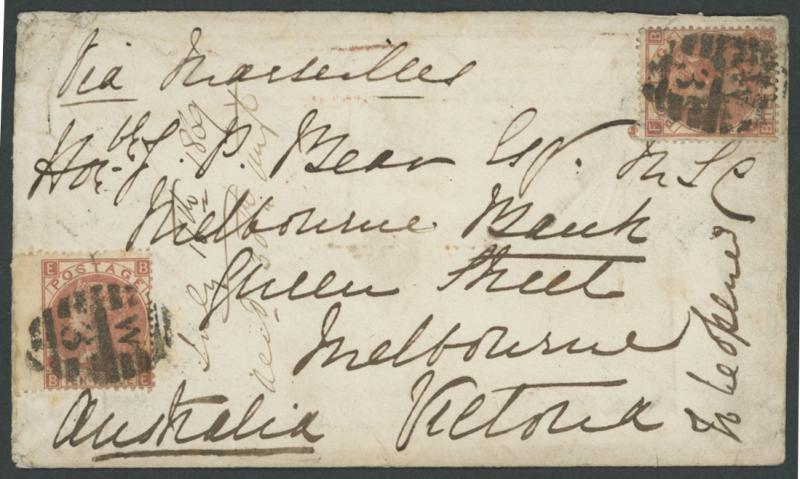 Via Marseilles
Honble J. P. Bear Esqr. M L C
Melbourne Bank
Queen Street
Melbourne
Australia Victoria
To be opened
July 1869
E B
POSTAGE
B E
W 3
B
F B
W 3